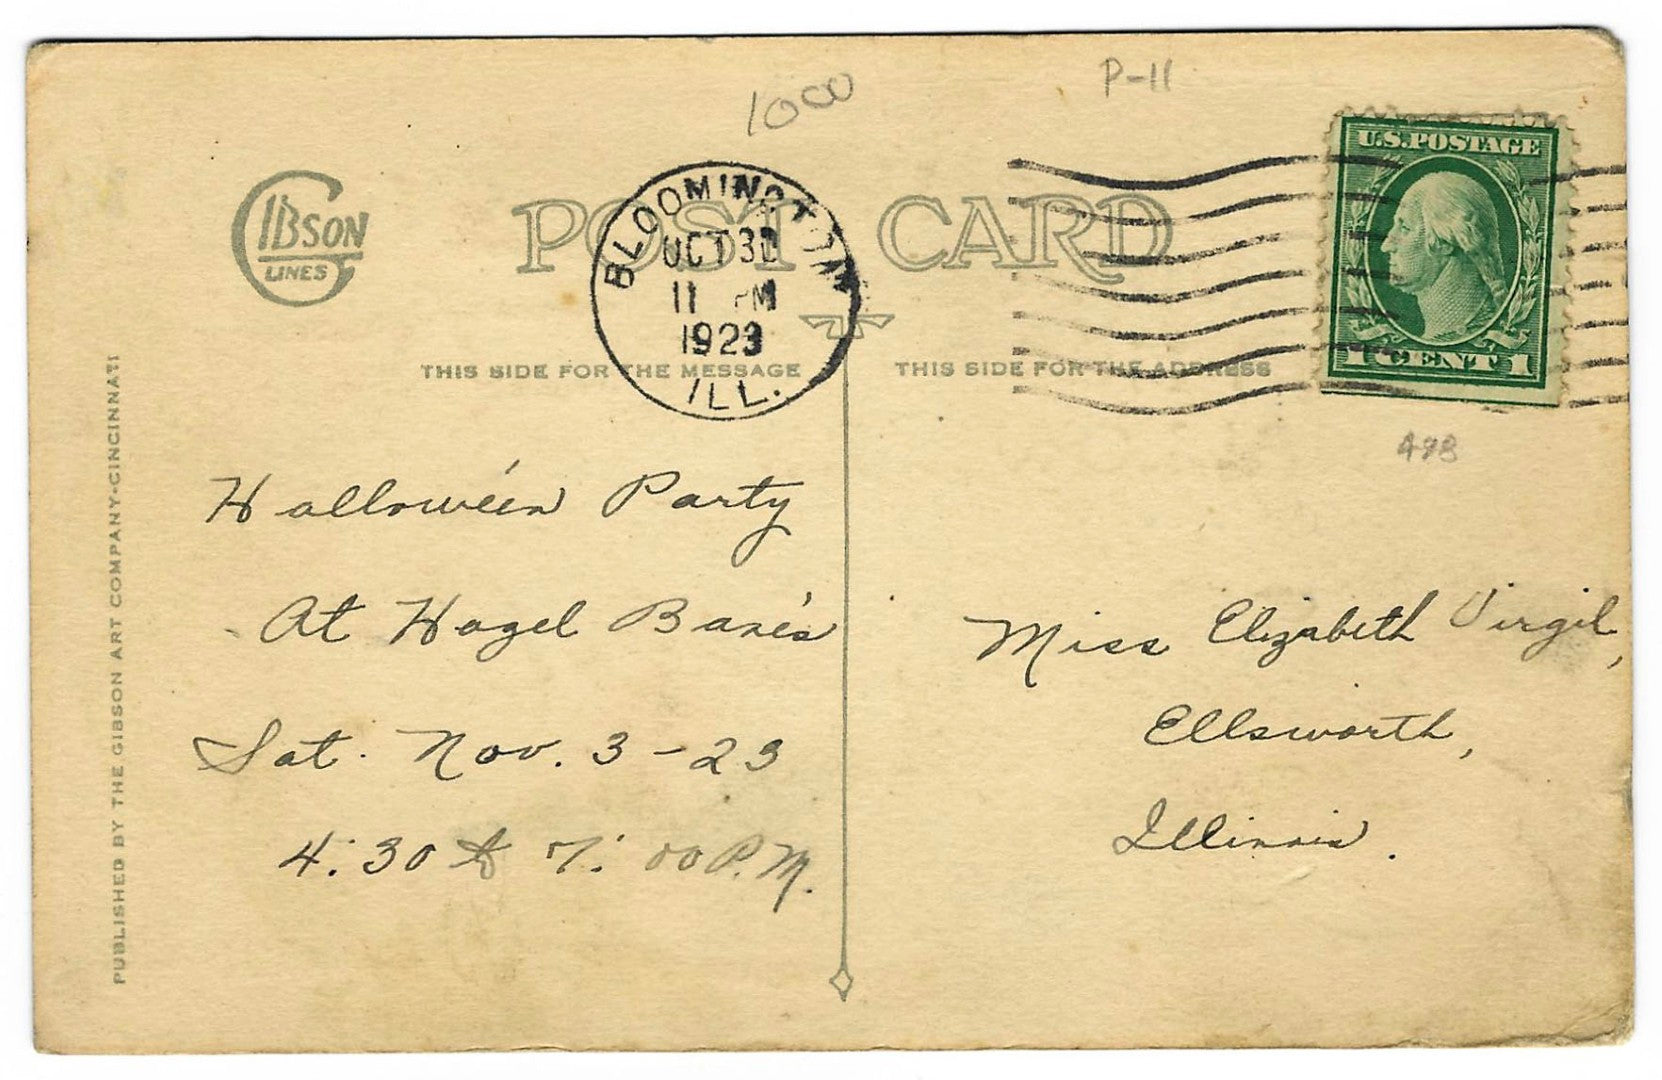 P-11
1000
GIBSON
LINES
POST CARD
BLOOMINGTON
OCT 30
11 PM
1923
ILL.
U.S. POSTAGE
1 CENT 1
THIS SIDE FOR THE MESSAGE
THIS SIDE FOR THE ADDRESS
498
Hallowe'en Party
At Hazel Bane's
Sat. Nov. 3-23
4:30 to 7:00 P.M.
Miss Elizabeth Virgil,
Ellsworth,
Illinois.
PUBLISHED BY THE GIBSON ART COMPANY-CINCINNATI